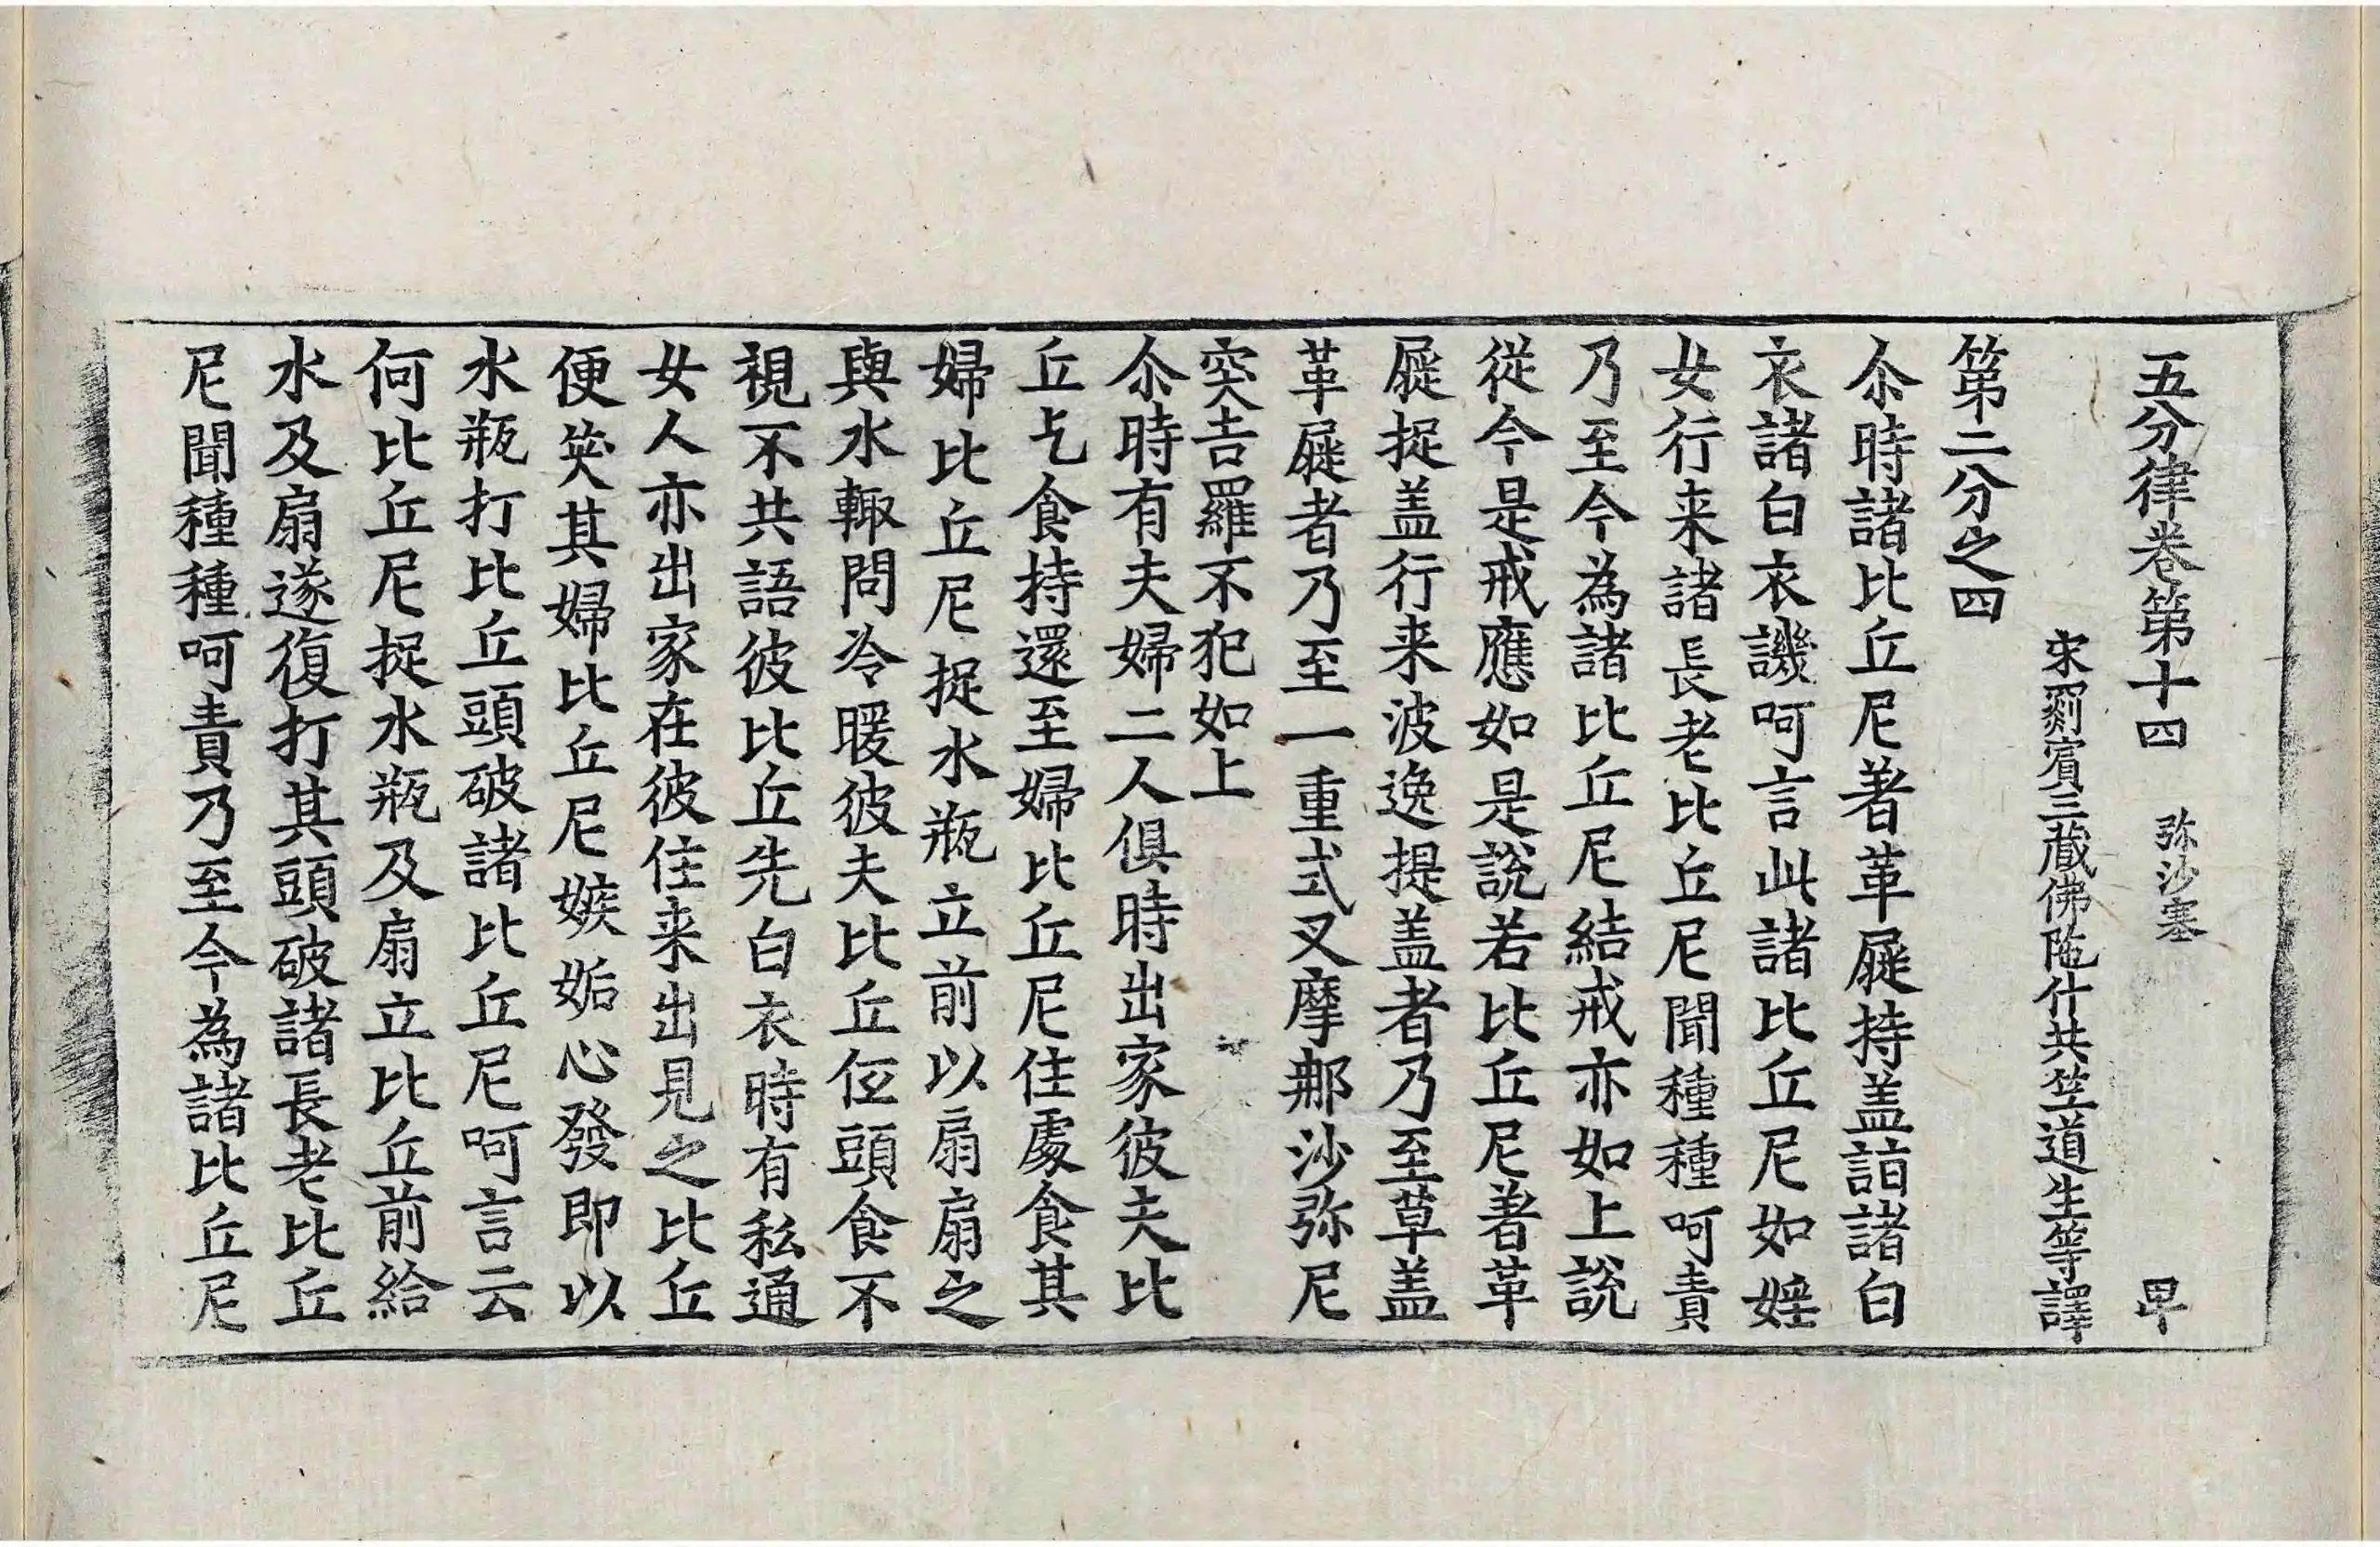 五分律卷第十四 弥沙塞 卑
宋罽賔三藏佛陁什共竺道生等譯
第二分之四
尒時諸比丘尼著革屣持盖詣諸白
衣諸白衣譏呵言此諸比丘尼如婬
女行来諸長老比丘尼聞種種呵責
乃至今為諸比丘尼結戒亦如上說
從今是戒應如是說若比丘尼著革
屣捉盖行来波逸提盖者乃至草盖
革屣者乃至一重式叉摩那沙弥尼
突吉羅不犯如上
尒時有夫婦二人俱時出家彼夫比
丘乞食持還至婦比丘尼住處食其
婦比丘尼捉水瓶立前以扇扇之
與水輙問冷暖彼夫比丘低頭食不
視不共語彼比丘先白衣時有私通
女人亦出家在彼住来出見之比丘
便笑其婦比丘尼嫉妬心發即以
水瓶打比丘頭破諸比丘尼呵言云
何比丘尼捉水瓶及扇立比丘前給
水及扇遂復打其頭破諸長老比丘
尼聞種種呵責乃至今為諸比丘尼